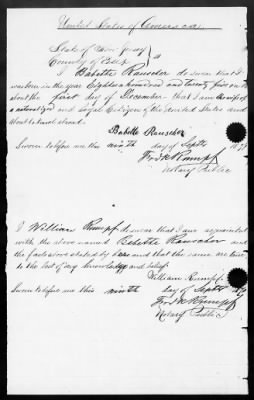 United States of America.
State of New Jersey
County of Essex } ss
I Babette Rauscher do swear that I
was born in the year Eighteen hundred and twenty five on or
about the first day of December that I am the wife of
a naturalized and loyal Citizen of the United States and
about to travel abroad.
Babette Rauscher
Sworn before me this ninth day of Septr 187
Notary Public
I William Rumpf do swear that I am acquainted
with the above named Babette Rauscher and
the facts as stated by her and that the same are true
to the best of my knowledge and belief.
William Rumpf
Sworn before me this ninth day of Septr 187
Notary Public